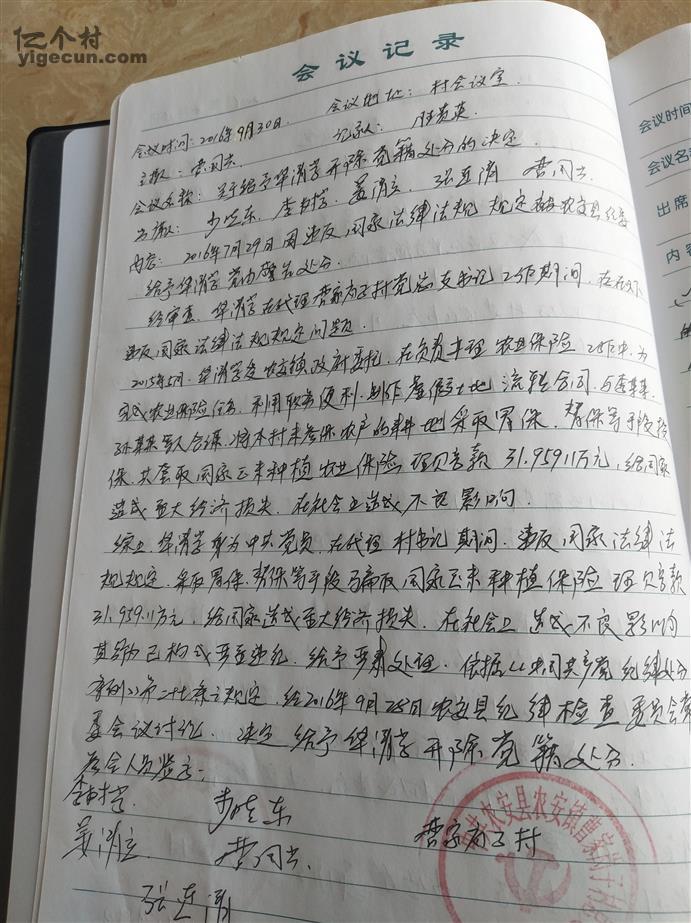 亿个村
yigecun.com
会议记录
会议时间: 2016年9月30日. 会议地址: 村会议室.
主持: 曹国志 记录人:
会议名称: 关于给予华清学开除党籍处分的决定.
出席人: 步晓东. 李树营. 姜清玄. 曹国志
内容: 2016年7月29日因违反国家法律法规规定 农安县纪委
给予华清学党内警告处分.
经审查. 华清学在代理曹家岗子村党总支书记工作期间, 存在以下
违反国家法律法规规定问题.
2015年5月. 华清学受农安镇政府委托. 在负责办理农业保险工作中, 为
完成农业保险任务, 利用职务便利. 制作虚假土地流转合同, 与李某某.
孙某某等人合谋. 将本村未参保农户的耕地采取冒保. 替保等手段投
保. 共套取国家玉米种植农业保险理贝音款31.95911万元, 给国家
造成重大经济损失. 在社会上造成不良影响.
综上. 华清学身为中共党员. 在代理村书记期间. 违反国家法律法
规规定. 采取冒保. 替保等手段骗取国家玉米种植保险理贝音款
31.95911万元. 给国家造成重大经济损失. 在社会上造成不良影响.
其行为已构成严重违纪. 给予严肃处理. 依据《中国共产党纪律处分
条例》第二十七条之规定. 经2016年9月28日农安县纪律检查委员会常
委会议讨论. 决定给予华清学开除党籍处分.
参会人员签字:
李树营. 步晓东 曹家岗子村
姜清玄. 曹国志
会议时间
会议名
出席
内容